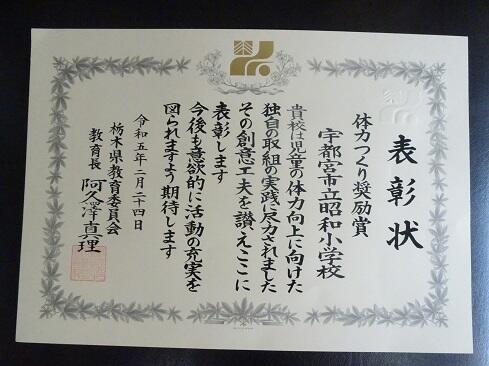 表彰状
体力つくり奨励賞
宇都宮市立昭和小学校
貴校は児童の体力向上に向けた
独自の取組の実践に尽力されました
その創意工夫を讃えここに
表彰します
今後も意欲的に活動の充実を
図られますよう期待します
令和五年二月二十四日
栃木県教育委員会
教育長 阿久澤真理